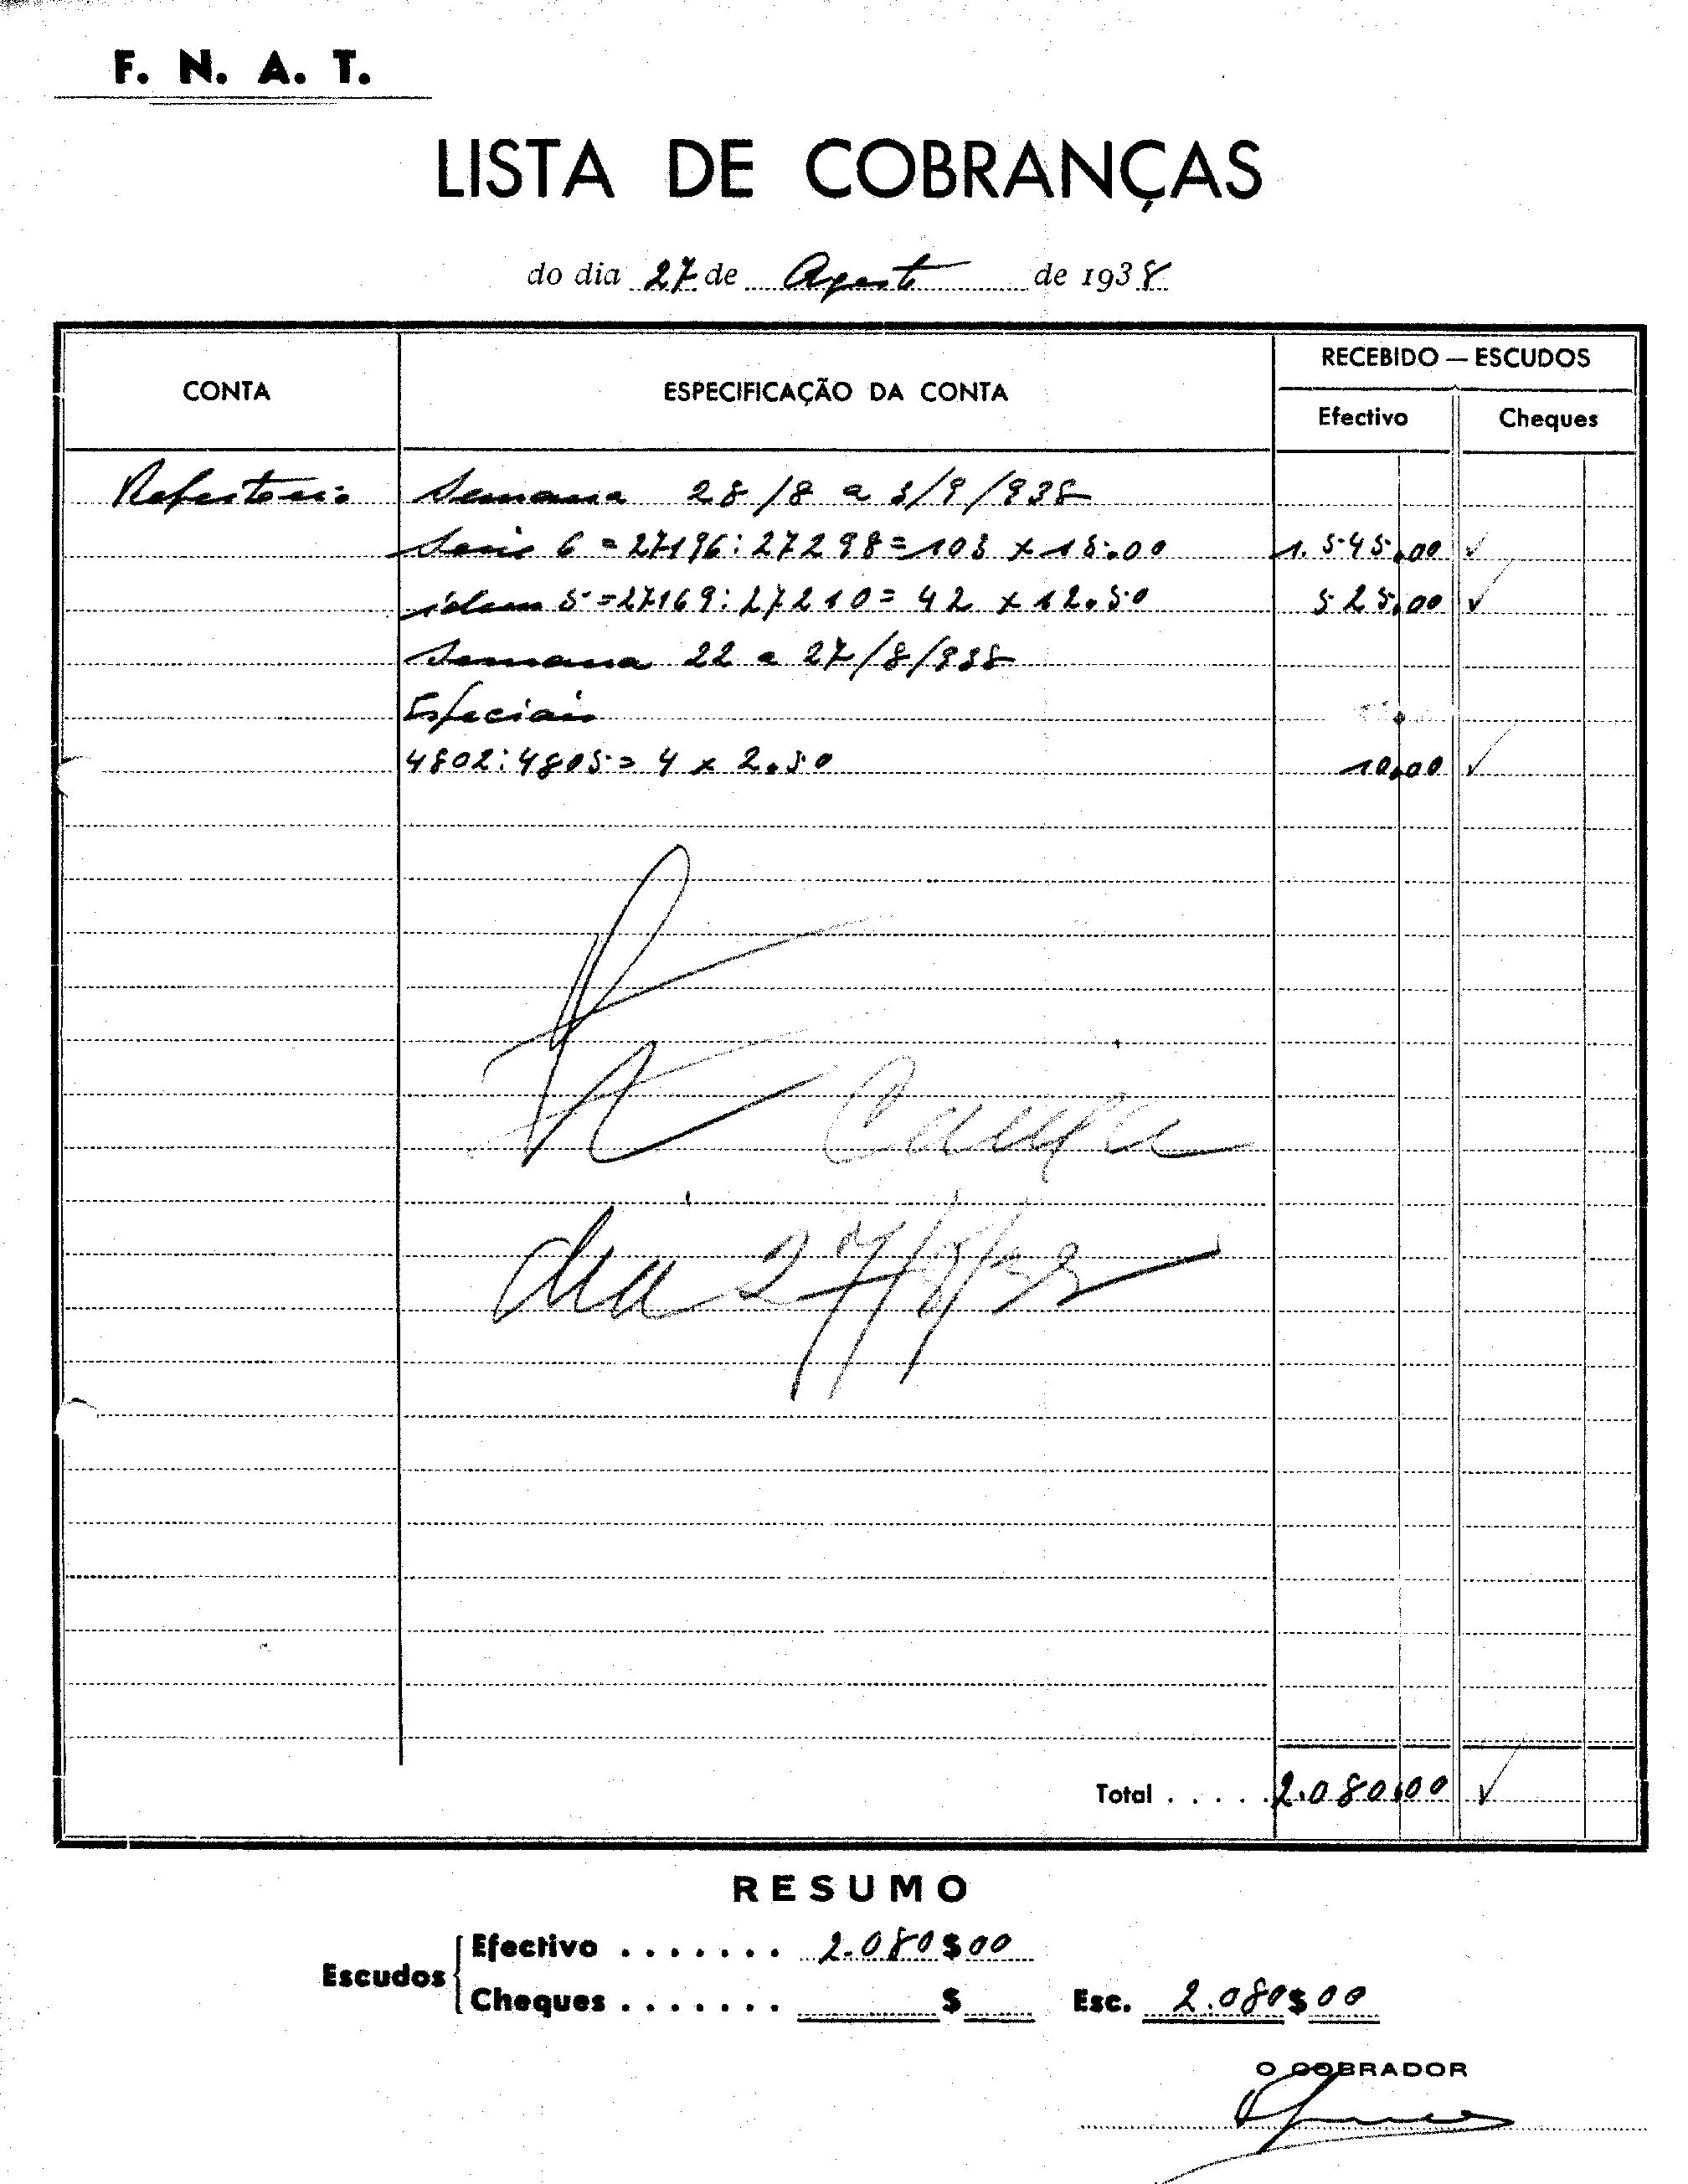 F. N. A. T.
LISTA DE COBRANÇAS
do dia 27 de Agosto de 1938
CONTA ESPECIFICAÇÃO DA CONTA RECEBIDO — ESCUDOS
Efectivo Cheques
Refeitorio Semana 28/8 a 3/9/938
Serie 6 = 27196:27298 = 103 x 15.00 1.545.00
idem 5 = 27169:27210 = 42 x 12.50 525.00
Semana 22 a 27/8/938
Especiais
4802:4805 = 4 x 2.50 10.00
Caixa
dia 27/8/38
Total . . . . . 2.080.00
RESUMO
Escudos Efectivo . . . . . . . 2.080$00
Cheques . . . . . . . $ Esc. 2.080$00
O COBRADOR